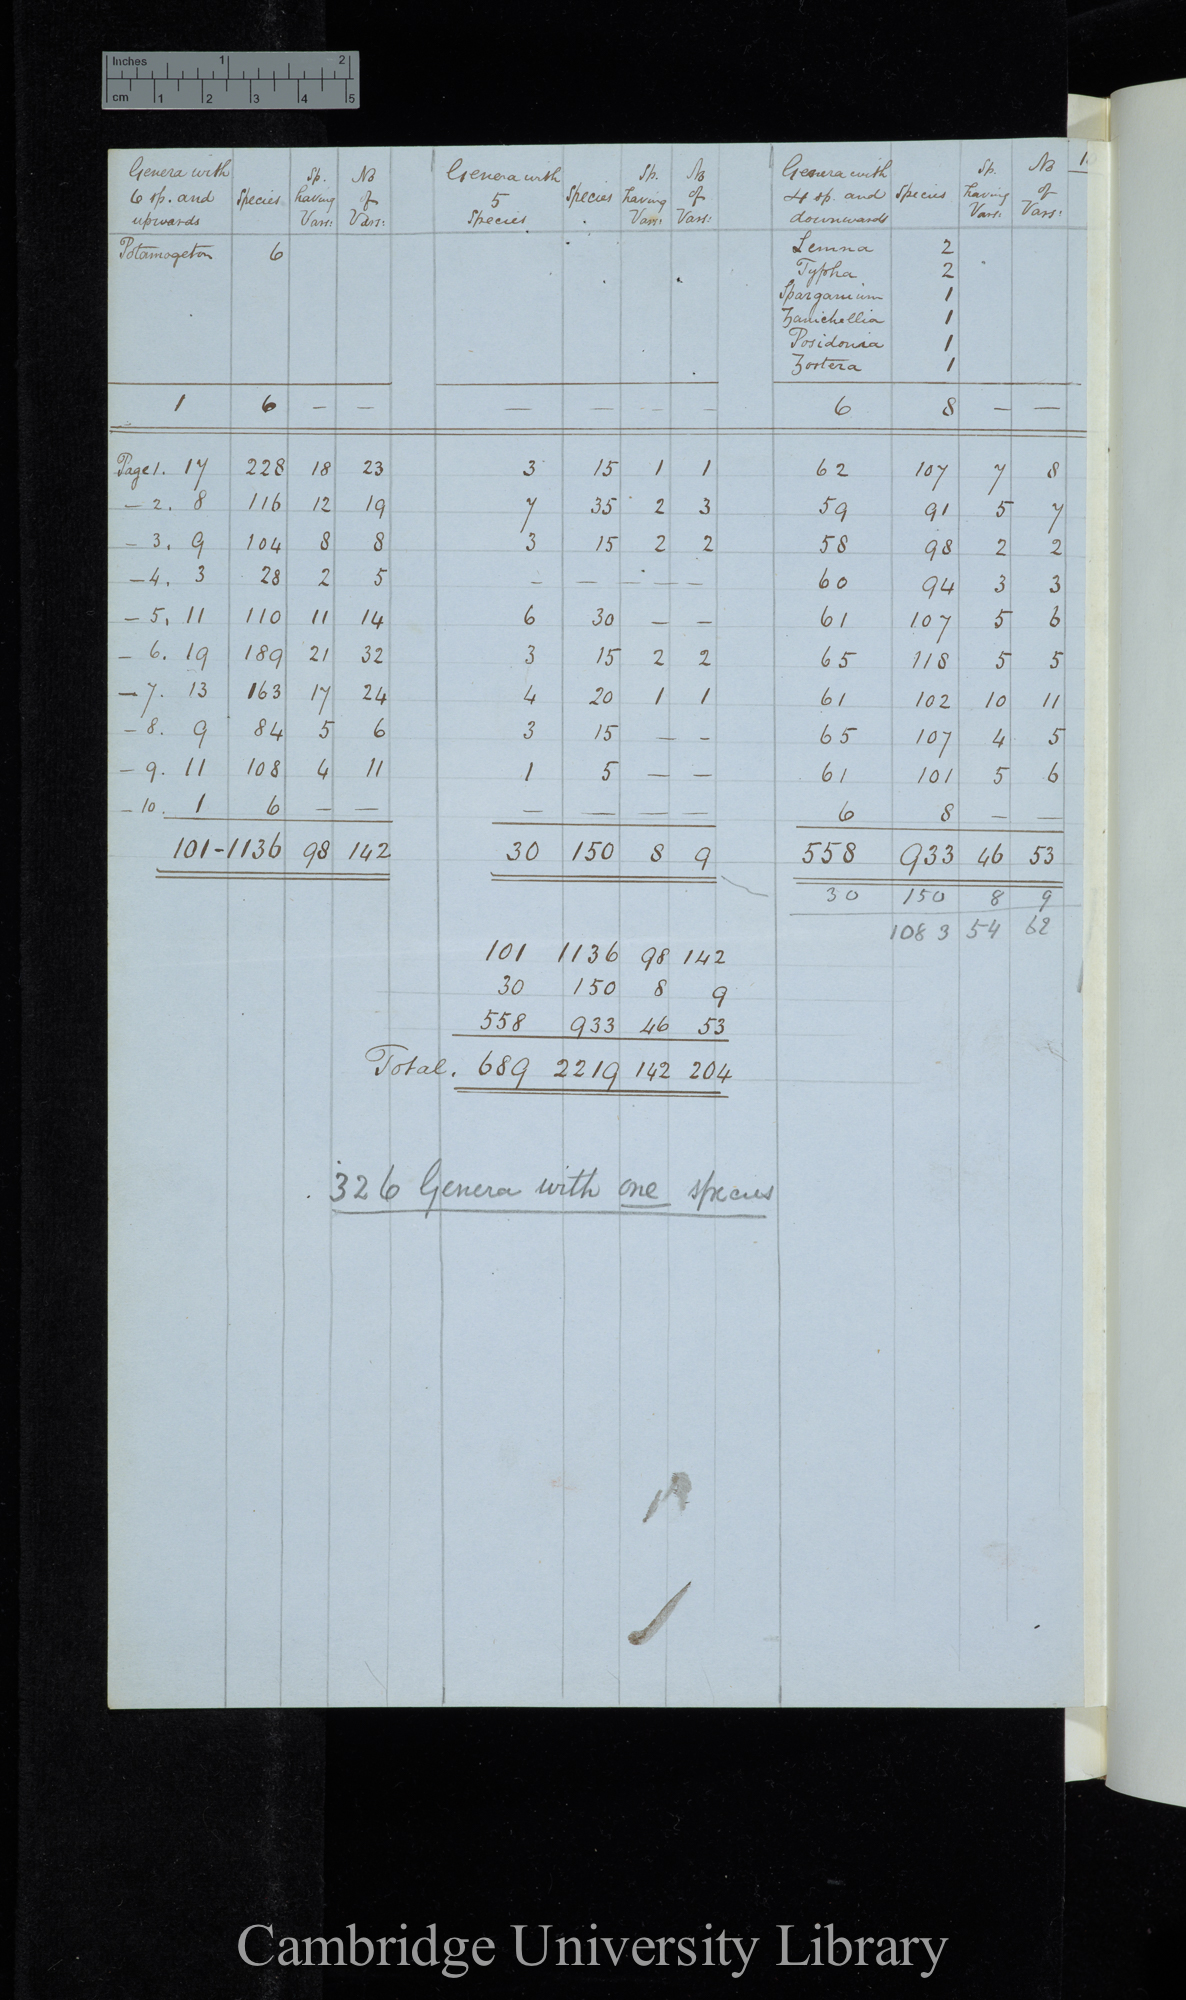 Inches 1 2
cm 1 2 3 4 5
Genera with 6 sp. and upwards | Species | Sp. having Vars: | No of Vars: | Genera with 5 Species | Species | Sp. having Vars: | No of Vars: | Genera with 4 sp. and downwards | Species | Sp. having Vars: | No of Vars:
Potamogeton 6 Lemna 2
Typha 2
Sparganium 1
Zanichellia 1
Posidonia 1
Zostera 1
1 6 — — — — — — 6 8 — —
Page 1. 17 228 18 23 3 15 1 1 62 107 7 8
— 2. 8 116 12 19 7 35 2 3 59 91 5 7
— 3. 9 104 8 8 3 15 2 2 58 98 2 2
— 4. 3 28 2 5 — — — — 60 94 3 3
— 5. 11 110 11 14 6 30 — — 61 107 5 6
— 6. 19 189 21 32 3 15 2 2 65 118 5 5
— 7. 13 163 17 24 4 20 1 1 61 102 10 11
— 8. 9 84 5 6 3 15 — — 65 107 4 5
— 9. 11 108 4 11 1 5 — — 61 101 5 6
— 10. 1 6 — — — — — — 6 8 — —
101-1136 98 142 30 150 8 9 558 933 46 53
30 150 8 9
1083 54 62
101 1136 98 142
30 150 8 9
558 933 46 53
Total. 689 2219 142 204
326 Genera with one species
Cambridge University Library